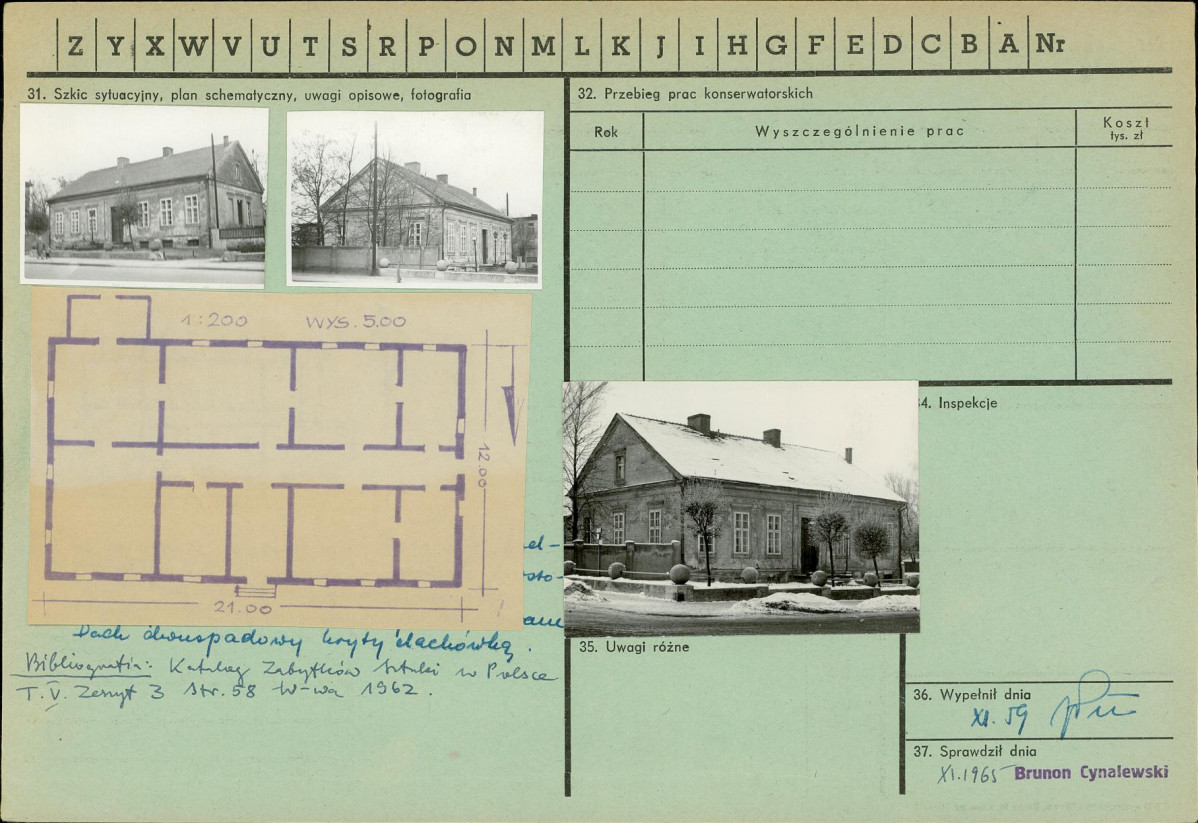 Z Y X W V U T S R P O N M L K J I H G F E D C B A Nr
31. Szkic sytuacyjny, plan schematyczny, uwagi opisowe, fotografia
1:200 WYS. 5.00
12.00
21.00
Dach dwuspadowy kryty dachówką.
Bibliografia: Katalog Zabytków Sztuki w Polsce
T. V. Zeszyt 3 str. 58 W-wa 1962.
32. Przebieg prac konserwatorskich
Rok Wyszczególnienie prac Koszt
tys. zł
4. Inspekcje
35. Uwagi różne
36. Wypełnił dnia
XI. 59
37. Sprawdził dnia
XI.1965 Brunon Cynalewski